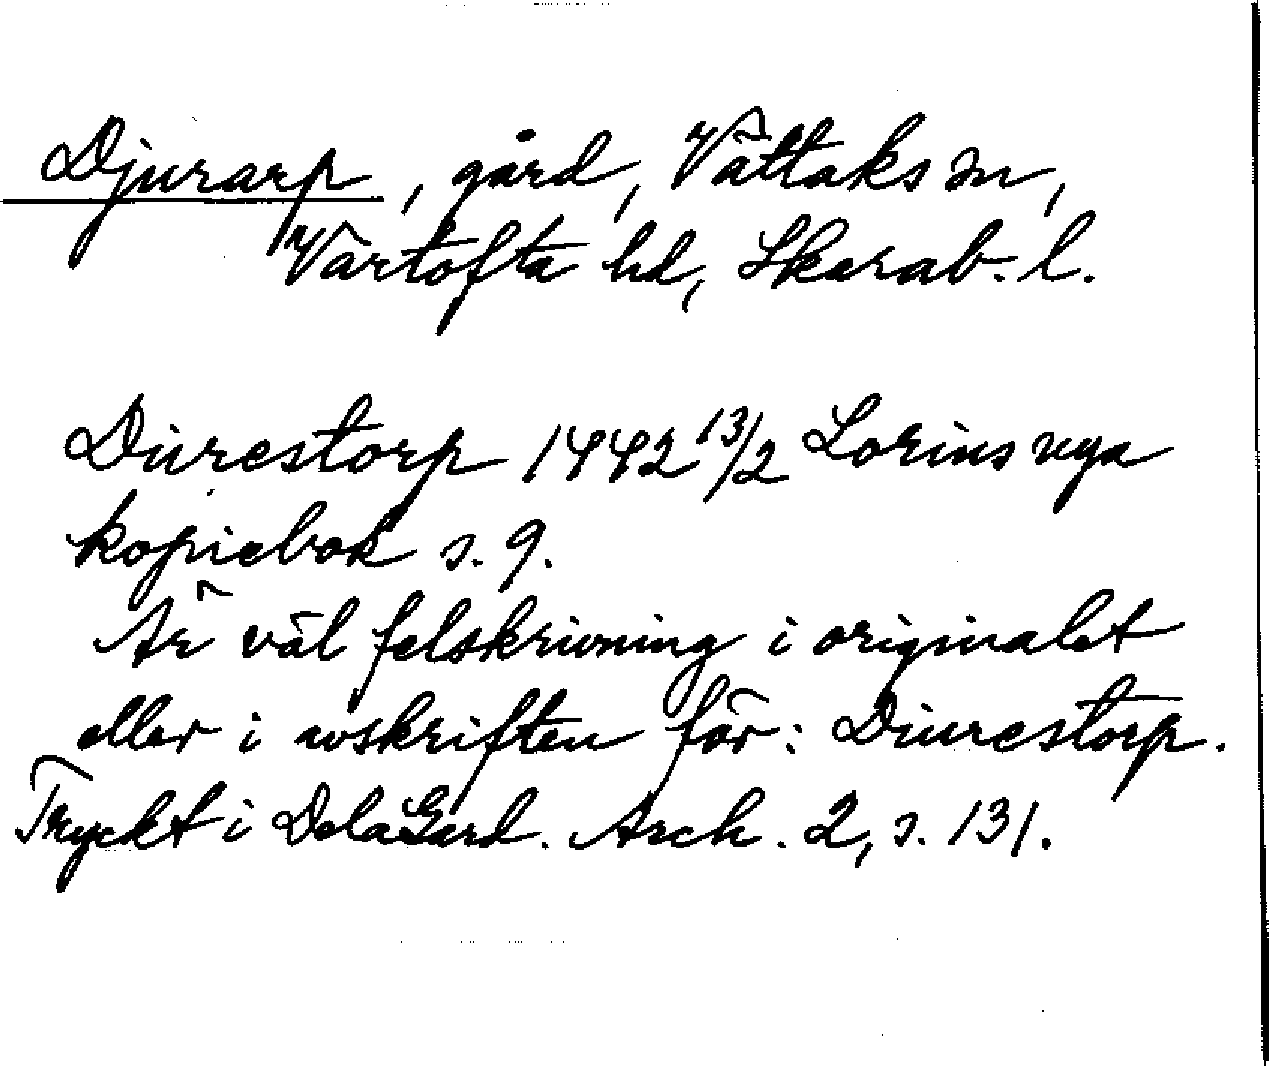 Djurarp, gård, Vättaks sn,
Vartofta hd, Skarab. l.
Dirrestorp 1442 13/2 Lorins nya
kopiebok s. 9.
Är väl felskrivning i originalet
eller i avskriften för: Diurestorp.
Tryckt i DelaGard. Arch. 2, s. 131.